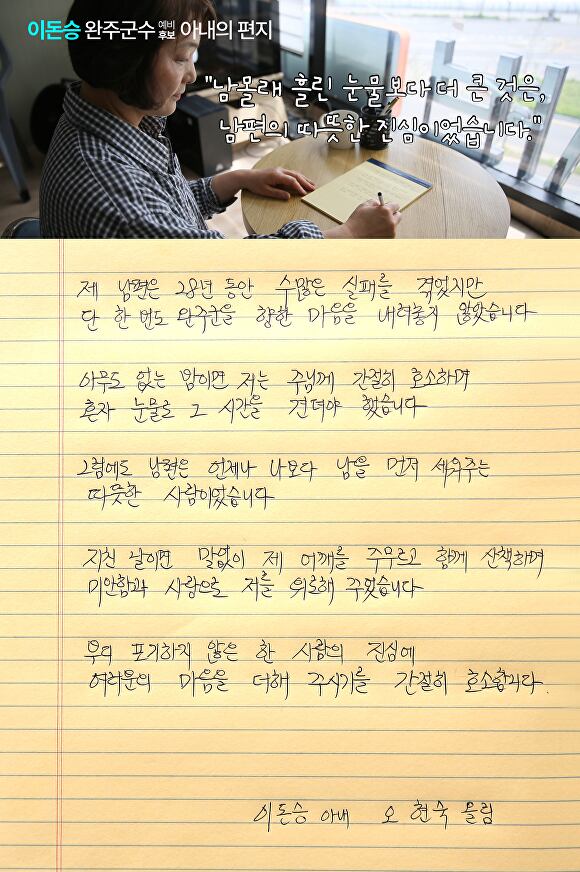 이돈승 완주군수 예비후보 아내의 편지
"남몰래 흘린 눈물보다 더 큰 것은,
남편의 따뜻한 진심이었습니다."
제 남편은 28년 동안 수많은 실패를 겪었지만
단 한 번도 완주군을 향한 마음을 내려놓지 않았습니다
아무도 없는 밤이면 저는 주님께 간절히 호소하며
혼자 눈물로 그 시간을 견뎌야 했습니다
그럼에도 남편은 언제나 나보다 남을 먼저 세워주는
따뜻한 사람이었습니다
지친 날이면 말없이 제 어깨를 주무르고 함께 산책하며
미안함과 사랑으로 저를 위로해 주었습니다
부디 포기하지 않은 한 사람의 진심에
여러분의 마음을 더해 주시기를 간절히 호소합니다.
이돈승 아내 오 현숙 올림